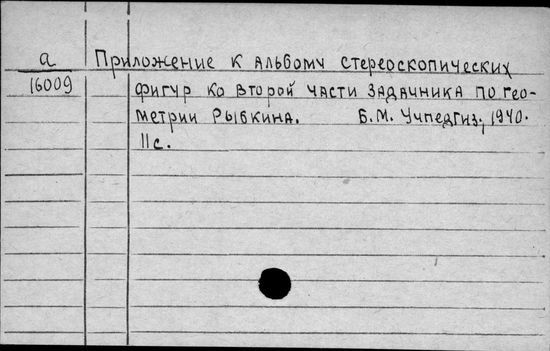 а
16009
Приложение к альбому стереоскопических
фигур ко второй части задачника по гео-
метрии Рыбкина. Б.М. Учпедгиз, 1940.
11с.